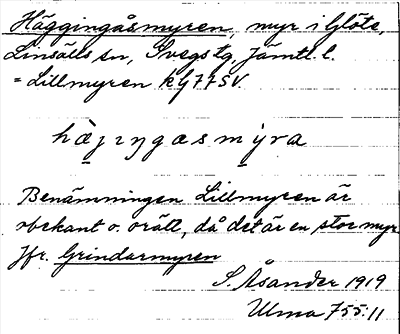 Häggingåsmyren, myr i Glöte,
Linsälls sn, Svegs tg, Jämtl. l.
= Lillmyren kg 77 SV.
hæ̀jıŋgasmy̆ra
Benämningen Lillmyren är
obekant o. orätt, då det är en stor myr
Jfr. Grindarmyren
S. Åsander 1919
Ulma 755:11